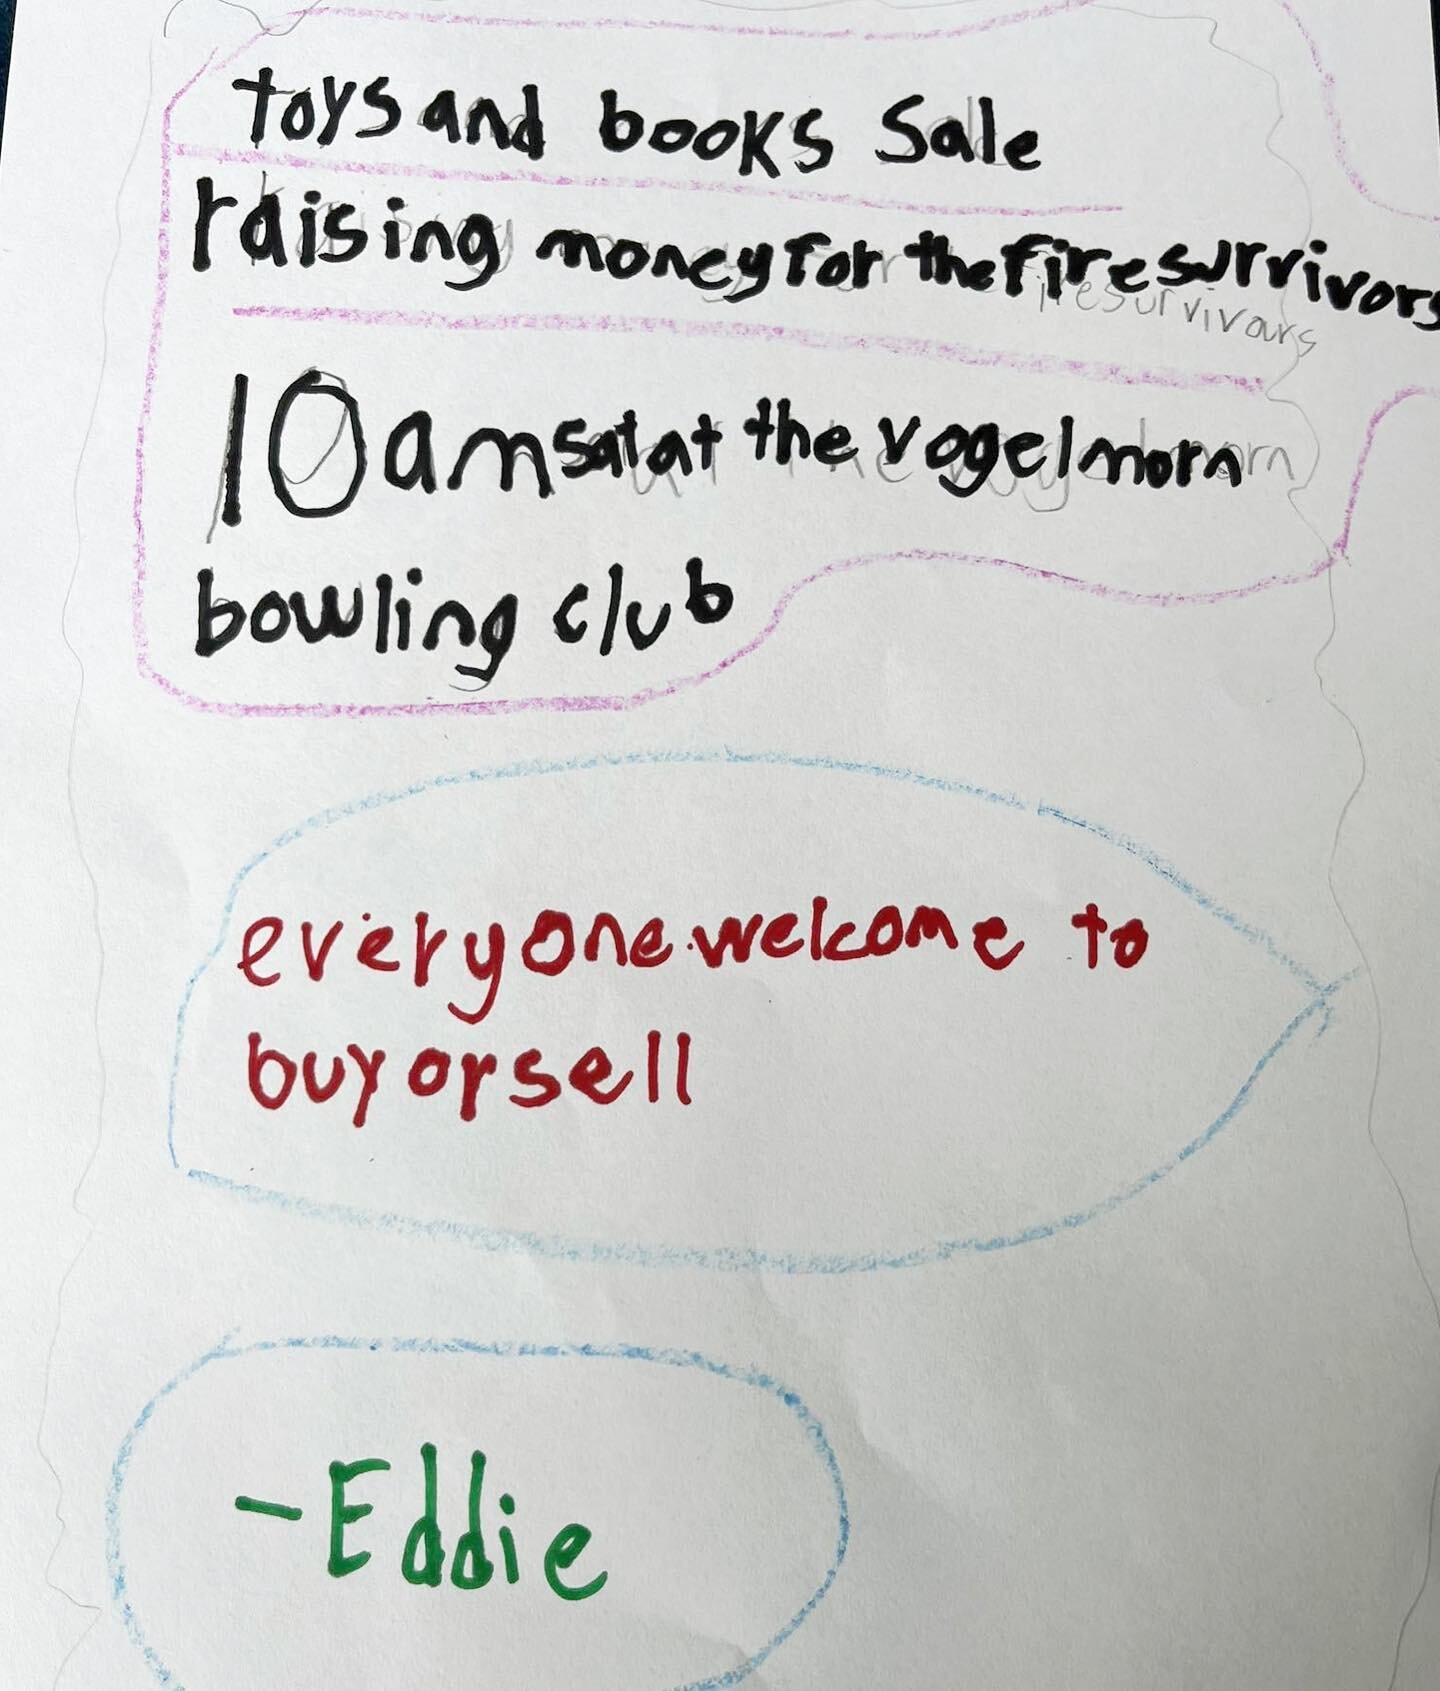 toys and books Sale
raising money for the fire survivors
10am sat at the vogelmorn
bowling club
everyone welcome to
buy or sell
-Eddie